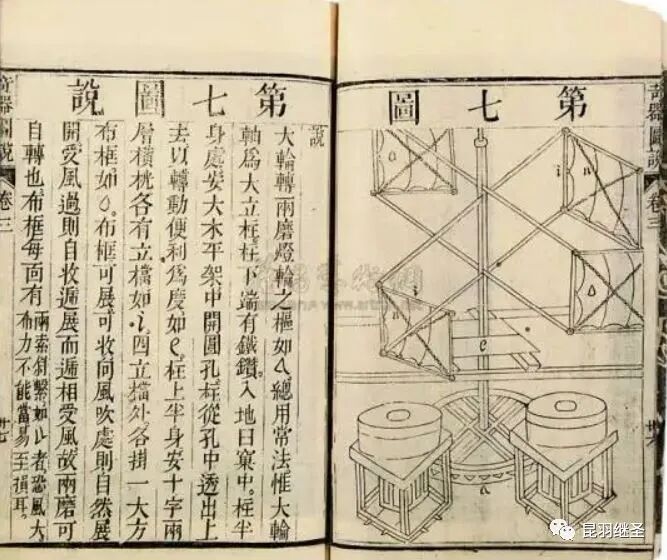 奇器圖說
卷三
第七圖
o
i
A
e
a
第七圖說
說
大輪轉兩磨燈輪之樞如A總用常法惟大輪
軸為大立柱柱下端有鐵鑽入地臼窠中柱半
身處安大水平架中開圓孔柱從孔中透出上
去以轉動便利為度如e柱上半身安十字兩
層橫桄各有立檔如i四立檔外各掛一大方
布框如o布框可展可收向風吹處則自然展
開受風過則自收遞展而遞相受風故兩磨可
自轉也布框每面有兩索斜繫如此者恐風大
布力不能當易至損耳
奇器圖說
卷三
昆羽继圣